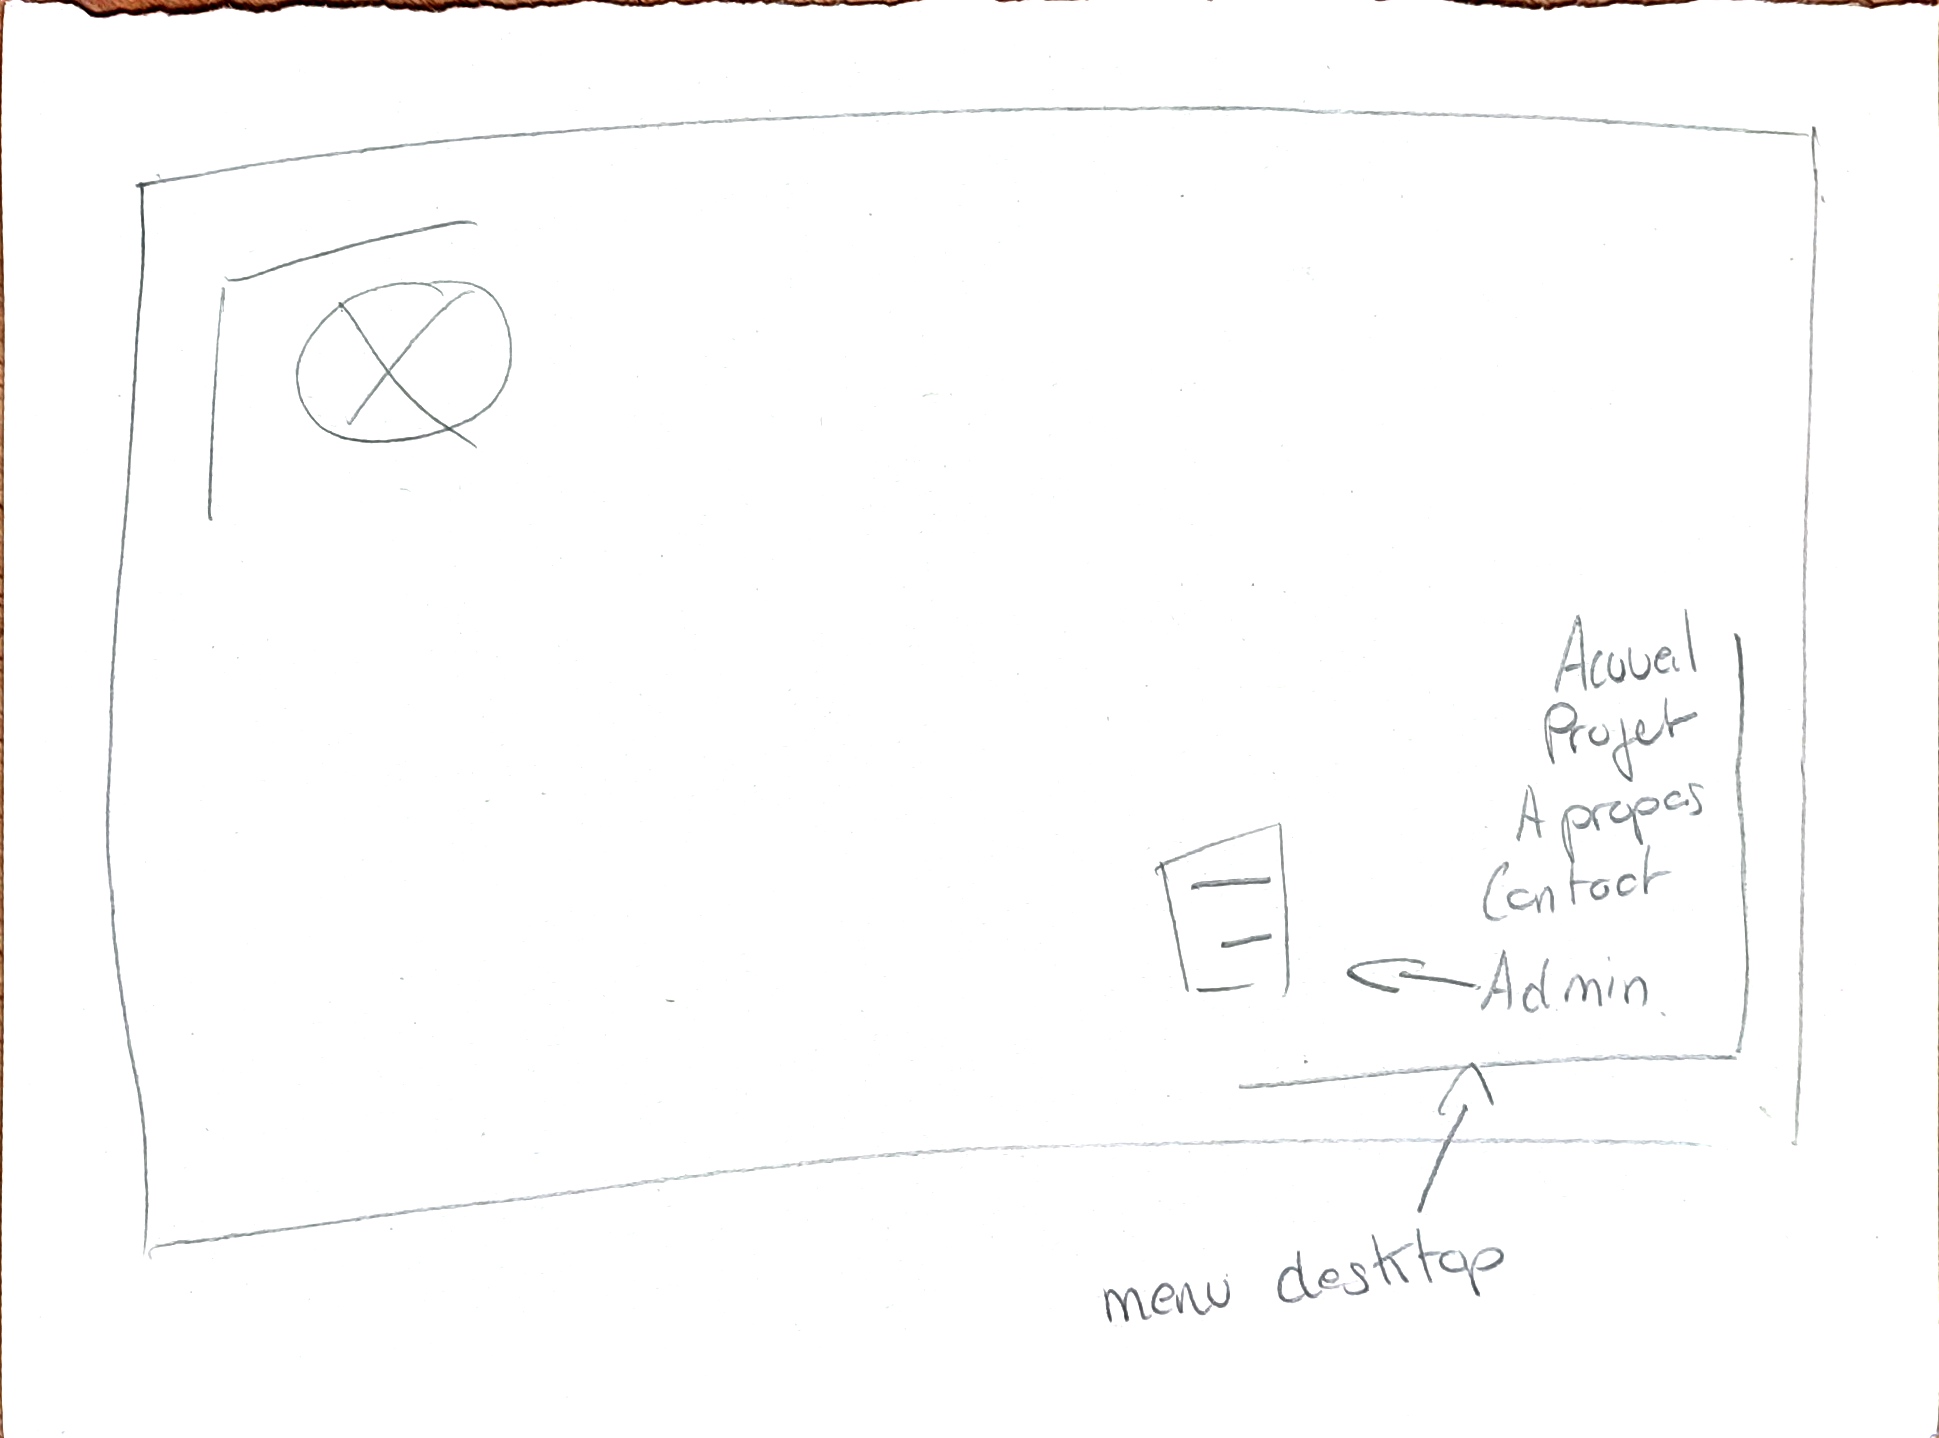 Acuueil
Projet
A propos
Contact
Admin
menu desktop